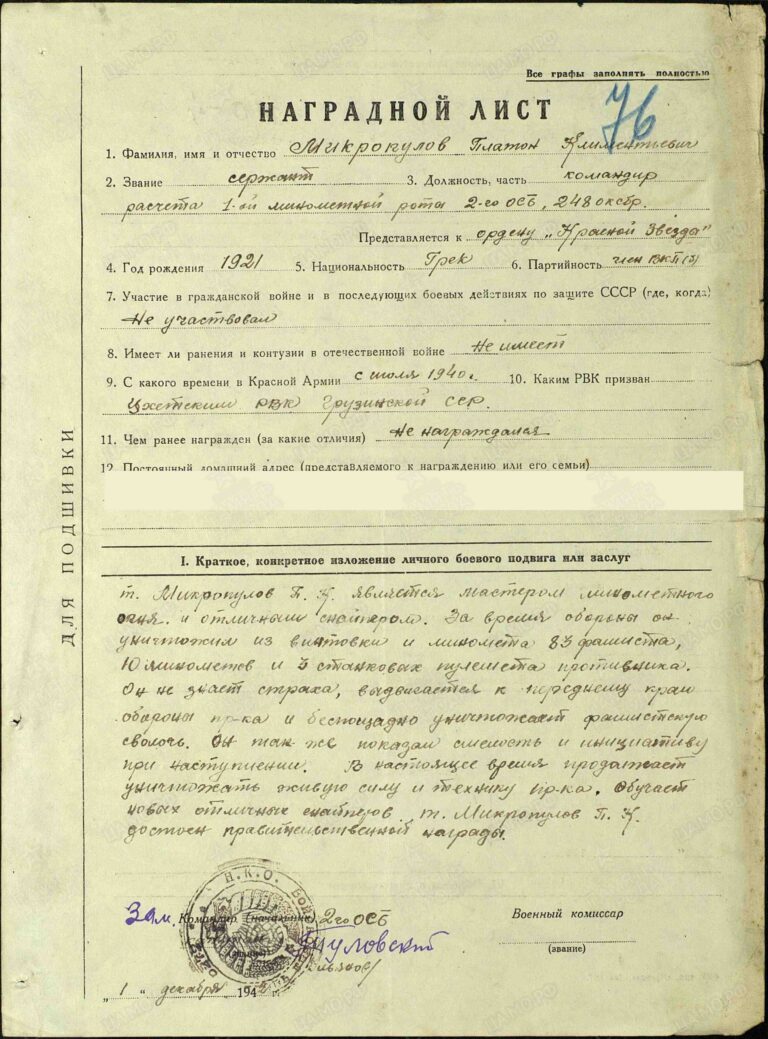 Все графы заполнять полностью
НАГРАДНОЙ ЛИСТ
76
1. Фамилия, имя и отчество Микропулов Платон Климентьевич
2. Звание сержант 3. Должность, часть командир
расчета 1-ой минометной роты 2-го осб, 248 оксбр.
Представляется к ордену „Красной Звезда"
4. Год рождения 1921 5. Национальность Грек 6. Партийность член ВКП(б)
7. Участие в гражданской войне и в последующих боевых действиях по защите СССР (где, когда)
Не участвовал
8. Имеет ли ранения и контузии в отечественной войне Не имеет
9. С какого времени в Красной Армии с июля 1940 г. 10. Каким РВК призван
РВК Грузинской ССР.
11. Чем ранее награжден (за какие отличия) Не награждался
12. Постоянный домашний адрес (представляемого к награждению или его семьи)
ДЛЯ ПОДШИВКИ
I. Краткое, конкретное изложение личного боевого подвига или заслуг
т. Микропулов П. К. является мастером минометного
огня и отличным снайпером. За время обороны он
уничтожил из винтовки и миномета 83 фашиста,
10 минометов и 3 станковых пулемета противника.
Он не знает страха, выдвигается к переднему краю
обороны пр-ка и беспощадно уничтожает фашистскую
сволочь. Он так же показал смелость и инициативу
при наступлении. В настоящее время продолжает
уничтожать живую силу и технику пр-ка. Обучает
новых отличных снайперов. т. Микропулов П. К.
достоен правительственной награды.
Н.К.О.
Зам. Командир (начальник) 2-го ОСБ
Военный комиссар
(звание)
(звание)
„1" декабря 194